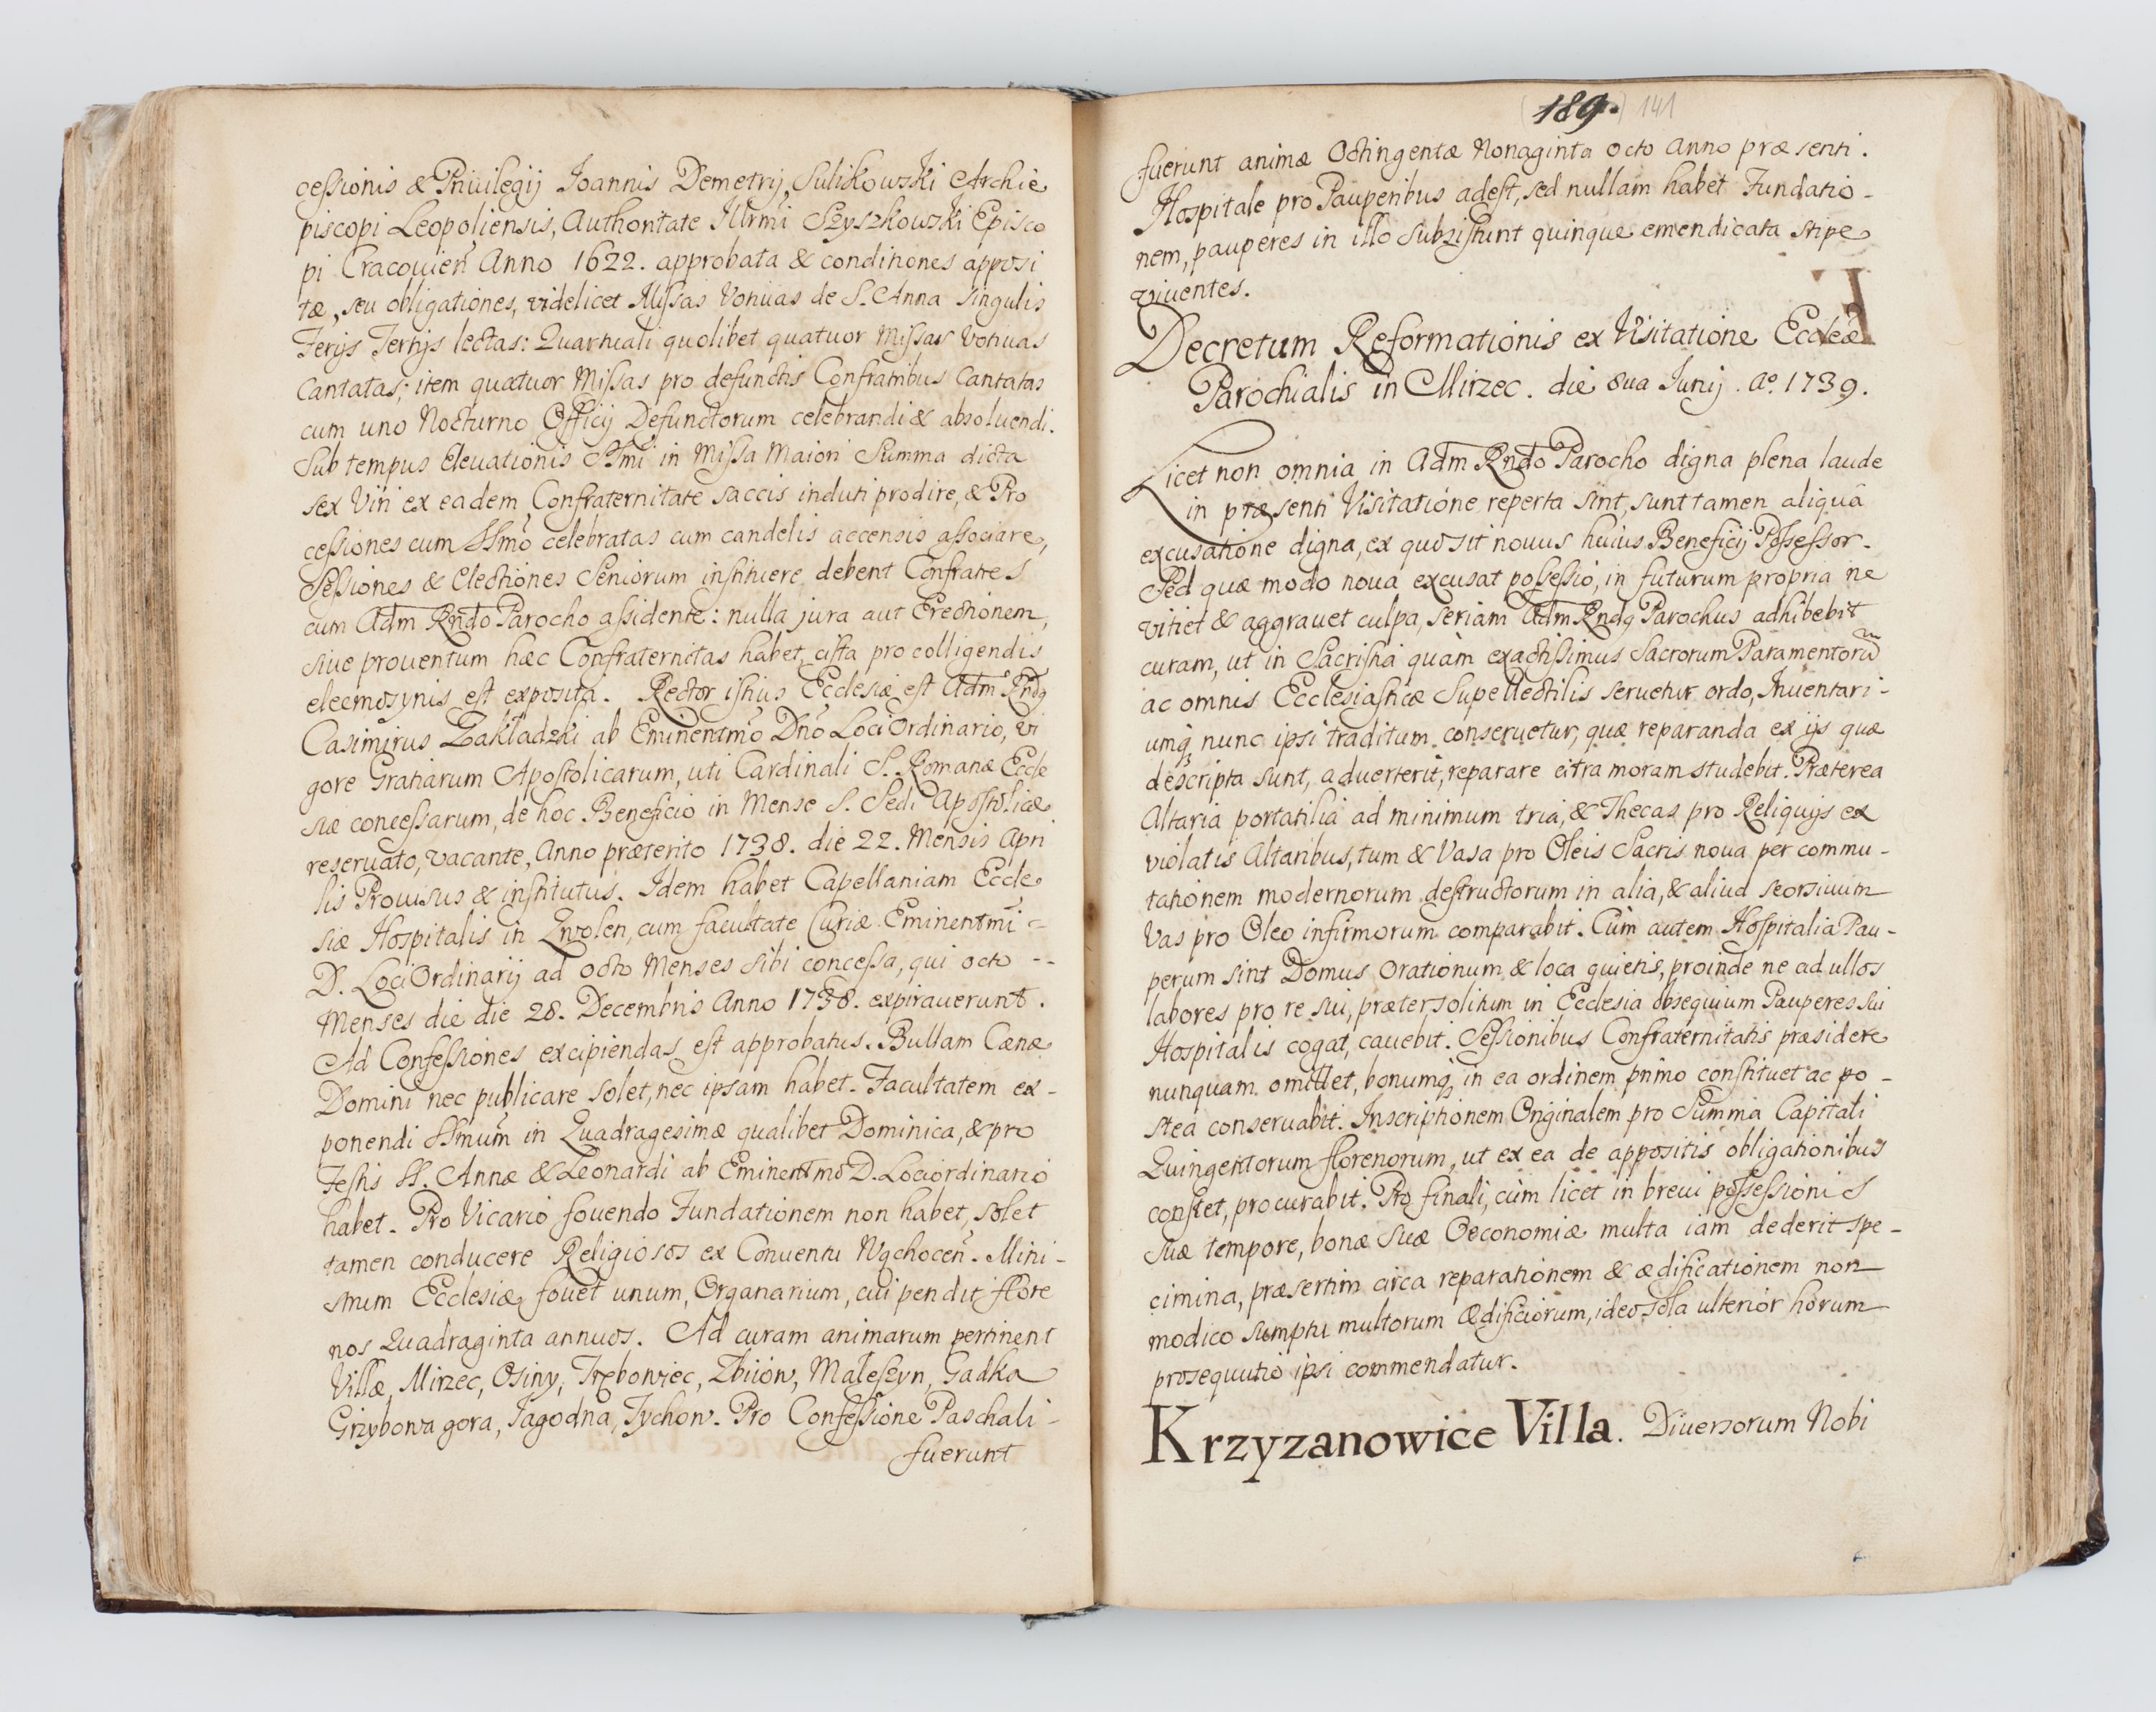 cessionis & Priuilegij Joannis Demetrij Sulikowski Archie
piscopi Leopoliensis, Authoritate Illrmi Szyszkowski Episco
pi Cracouien Anno 1622. approbata & conditiones apposi
tæ, seu obligationes, videlicet Missas Votiuas de S. Anna singulis
Ferijs Tertijs lectas: Quartuali quolibet quatuor Missas Votiuas
Cantatas; item quatuor Missas pro defunctis Confratribus Cantatas
cum uno Nocturno Officij Defunctorum celebrandi & absoluendi.
Sub tempus Eleuationis SSmi in Missa Maiori Summa dicta
sex Viri ex eadem Confraternitate saccis induti prodire, & Pro
cessiones cum SSmo celebratas cum candelis accensis associare,
Sessiones & Electiones Seniorum instituere debent Confratres
cum Adm Rndo Parocho assidente: nulla jura aut Erectionem,
siue prouentum hæc Confraternitas habet, cista pro colligendis
eleemosynis est exposita. Rector istius Ecclesiæ est Adm Rndq
Casimirus Zakładzki ab Eminentmo Dno Loci Ordinario, vi
gore Gratiarum Apostolicarum, uti Cardinali S. Romanæ Eccle
siæ concessarum, de hoc Beneficio in Mense S. Sedi Apostolicæ
reseruato, vacante, Anno præterito 1738. die 22. Mensis Apri
lis Prouisus & institutus. Idem habet Capellaniam Eccle
siæ Hospitalis in Zwolen, cum facultate Curiæ Eminentmi =
D. Loci Ordinarij ad octo Menses sibi concessa, qui octo --
Menses die die 28. Decembris Anno 1738. expirauerunt.
Ad Confessiones excipiendas est approbatus. Bullam Cænæ
Domini nec publicare solet, nec ipsam habet. Facultatem ex-
ponendi SSmum in Quadragesimæ qualibet Dominica, & pro
Festis SS. Annæ & Leonardi ab Eminentmo D. Loci ordinario
habet. Pro Vicario fouendo Fundationem non habet, solet
tamen conducere Religiosos ex Conuentu Wąchocen. Mini-
strum Ecclesiæ fouet unum, Organarium, cui pendit flore
nos Quadraginta annuos. Ad curam animarum pertinent
Villæ, Mirzec, Osiny, Trębowiec, Zbiiow, Małeszyn, Gadka
Grzybowa gora, Jagodna, Tychow. Pro Confessione Paschali-
fuerunt
189. 141
fuerunt animæ Octingentæ Nonaginta octo Anno præsenti.
Hospitale pro Pauperibus adest, sed nullam habet Fundatio-
nem, pauperes in illo subsistunt quinque emendicata stipe
viuentes.
Decretum Reformationis ex Visitatione Eccleæ
Parochialis in Mirzec. die 8ua Junij. Ao. 1739.
Licet non omnia in Adm Rndo Parocho digna plena laude
in præsenti Visitatione reperta sint, sunt tamen aliqua
excusatione digna, ex quo sit nouus huius Beneficij Possessor.
Sed quæ modo noua excusat possessio, in futurum propria ne
vitiet & aggrauet culpa, seriam Adm Rndq Parochus adhibebit
curam, ut in Sacristia quàm exactissimus Sacrorum Paramentorũ
ac omnis Ecclesiasticæ Supellectilis seruetur ordo, Inuentari-
umq nunc ipsi traditum conseruetur, quæ reparanda ex ijs quæ
descripta sunt, aduerterit, reparare citra moram studebit. Præterea
Altaria portatilia ad minimum tria, & Thecas pro Reliquijs ex
violatis Altaribus, tum & Vasa pro Oleis Sacris noua per commu-
tationem modernorum destructorum in alia, & aliud seorsiuum
Vas pro Oleo infirmorum comparabit. Cùm autem Hospitalia Pau-
perum sint Domus Orationum & loca quietis, proinde ne ad ullos
labores pro re sui, præter solitum in Ecclesia obsequium Pauperes sui
Hospitalis cogat, cauebit. Sessionibus Confraternitatis præsidere
nunquam omittet, bonumq in ea ordinem primo constituet ac po-
stea conseruabit. Inscriptionem Originalem pro Summa Capitali
Quingentorum florenorum, ut ex ea de appositis obligationibus
constet, procurabit. Pro finali, cùm licet in breui possessionis
suæ tempore, bonæ suæ Oeconomiæ multa iam dederit spe-
cimina, præsertim circa reparationem & ædificationem non
modico sumptu multorum Ædificiorum, ideo sola ulterior horum
prosequutio ipsi commendatur.
Krzyzanowice Villa. Diuersorum Nobi